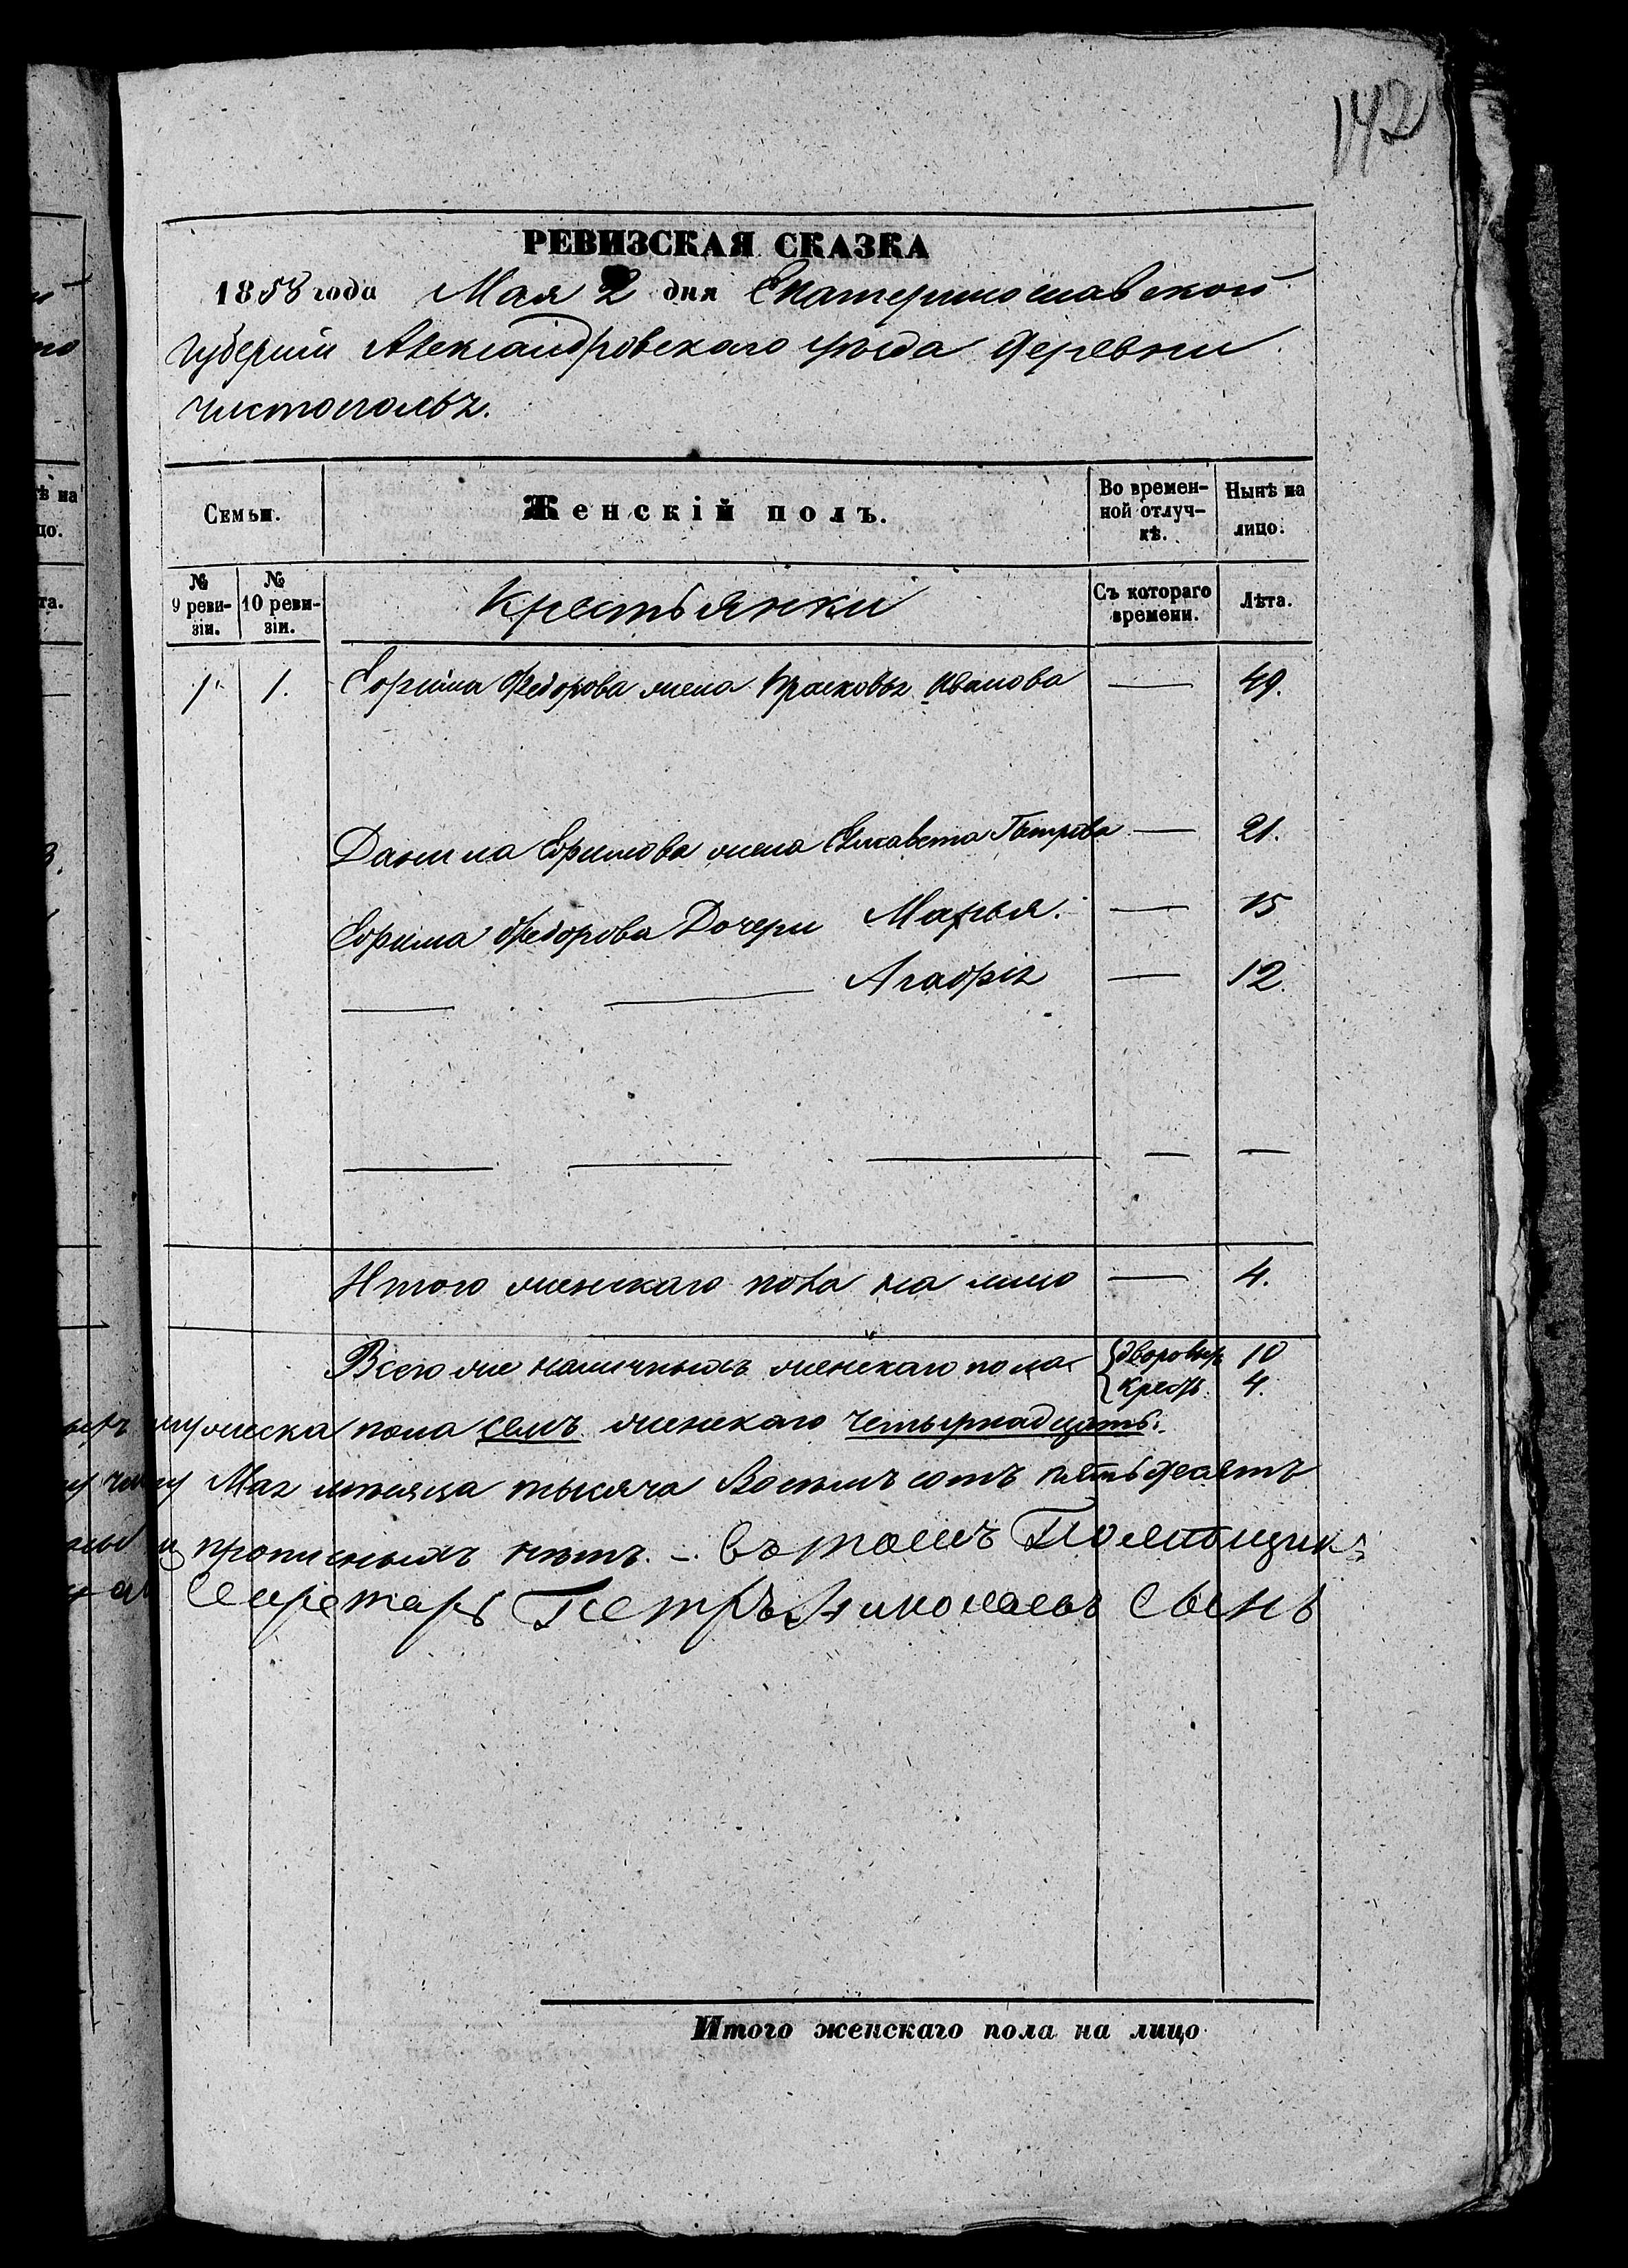 142
РЕВИЗСКАЯ СКАЗКА
1858 года Мая 2 дня Екатеринославской
Губернiи Александровского уѣзда деревни
Чистополья.
Семьи. Женскiй полъ. Во времен-ной отлуч-кѣ. Нынѣ на лицо.
№ 9 реви-зiи. № 10 реви-зiи. Крестьянки Съ котораго времени. Лѣта.
1. 1. Ефима Федорова жена Прасковья Иванова — 49.
Данила Ефимова жена Елисавета Петрова — 21.
Ефима Федорова Дочери Марья. — 15
Агафья — 12.
Итого женскаго пола на лицо — 4.
Всего же наличныхъ женскаго пола {дворовыхъ 10
{Крест. 4.
мужеска пола семъ женскаго четырнадцать.
Мая мѣсяца тысяча Восемъ сотъ пятьдесятъ
и прописныхъ нѣтъ. — Въ томъ Помѣщикъ
Секретарь Петръ Николаевъ Сынъ
Итого женскаго пола на лицо